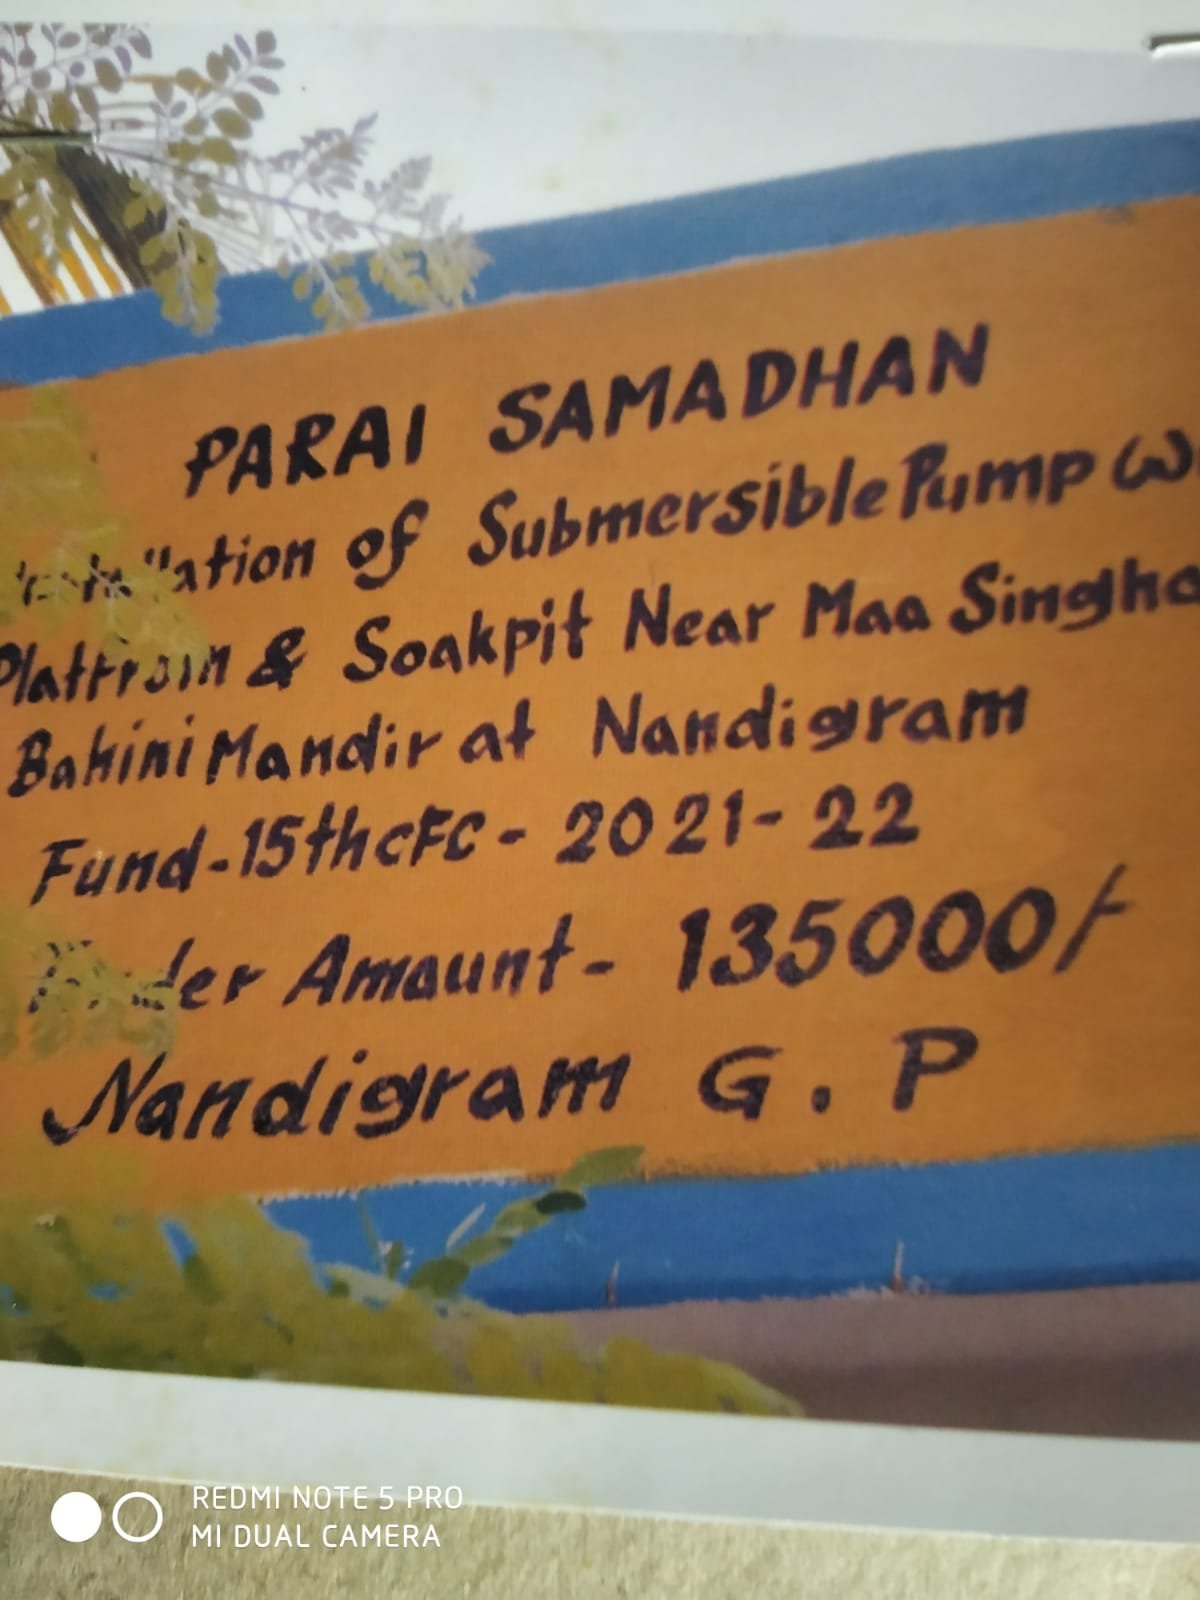 PARAI SAMADHAN
of Submersible Pump
& Soakpit Near Maa
Bahini Mandir at Nandigram
Fund-15thcFC- 2021-22
Amaunt- 135000/-
Nandigram G.P
REDMI NOTE 5 PRO
MI DUAL CAMERA